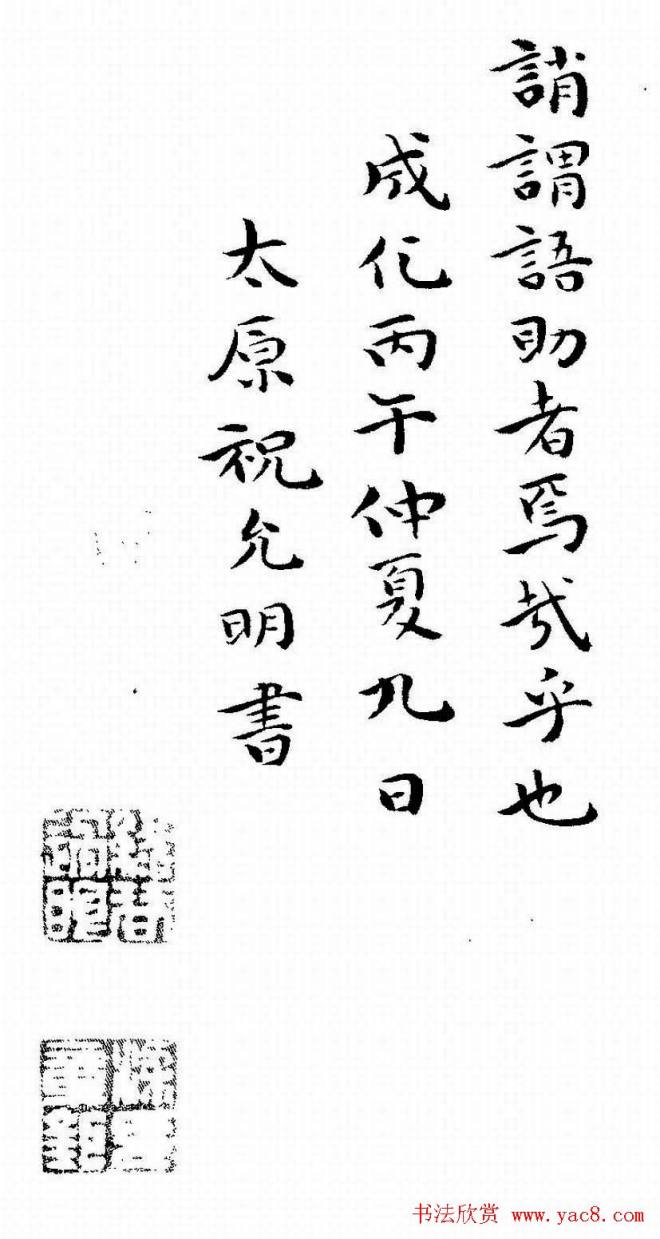 誚謂語助者焉哉乎也
成化丙午仲夏九日
太原祝允明書
书法欣赏 www.yac8.com